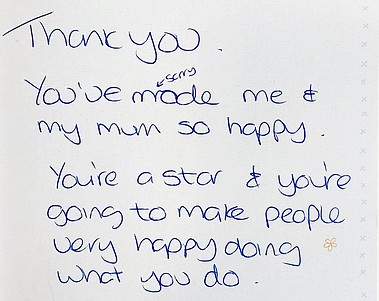 Thank you.
sorry
You've made me &
my mum so happy.
You're a star & you're
going to make people
very happy doing
what you do.